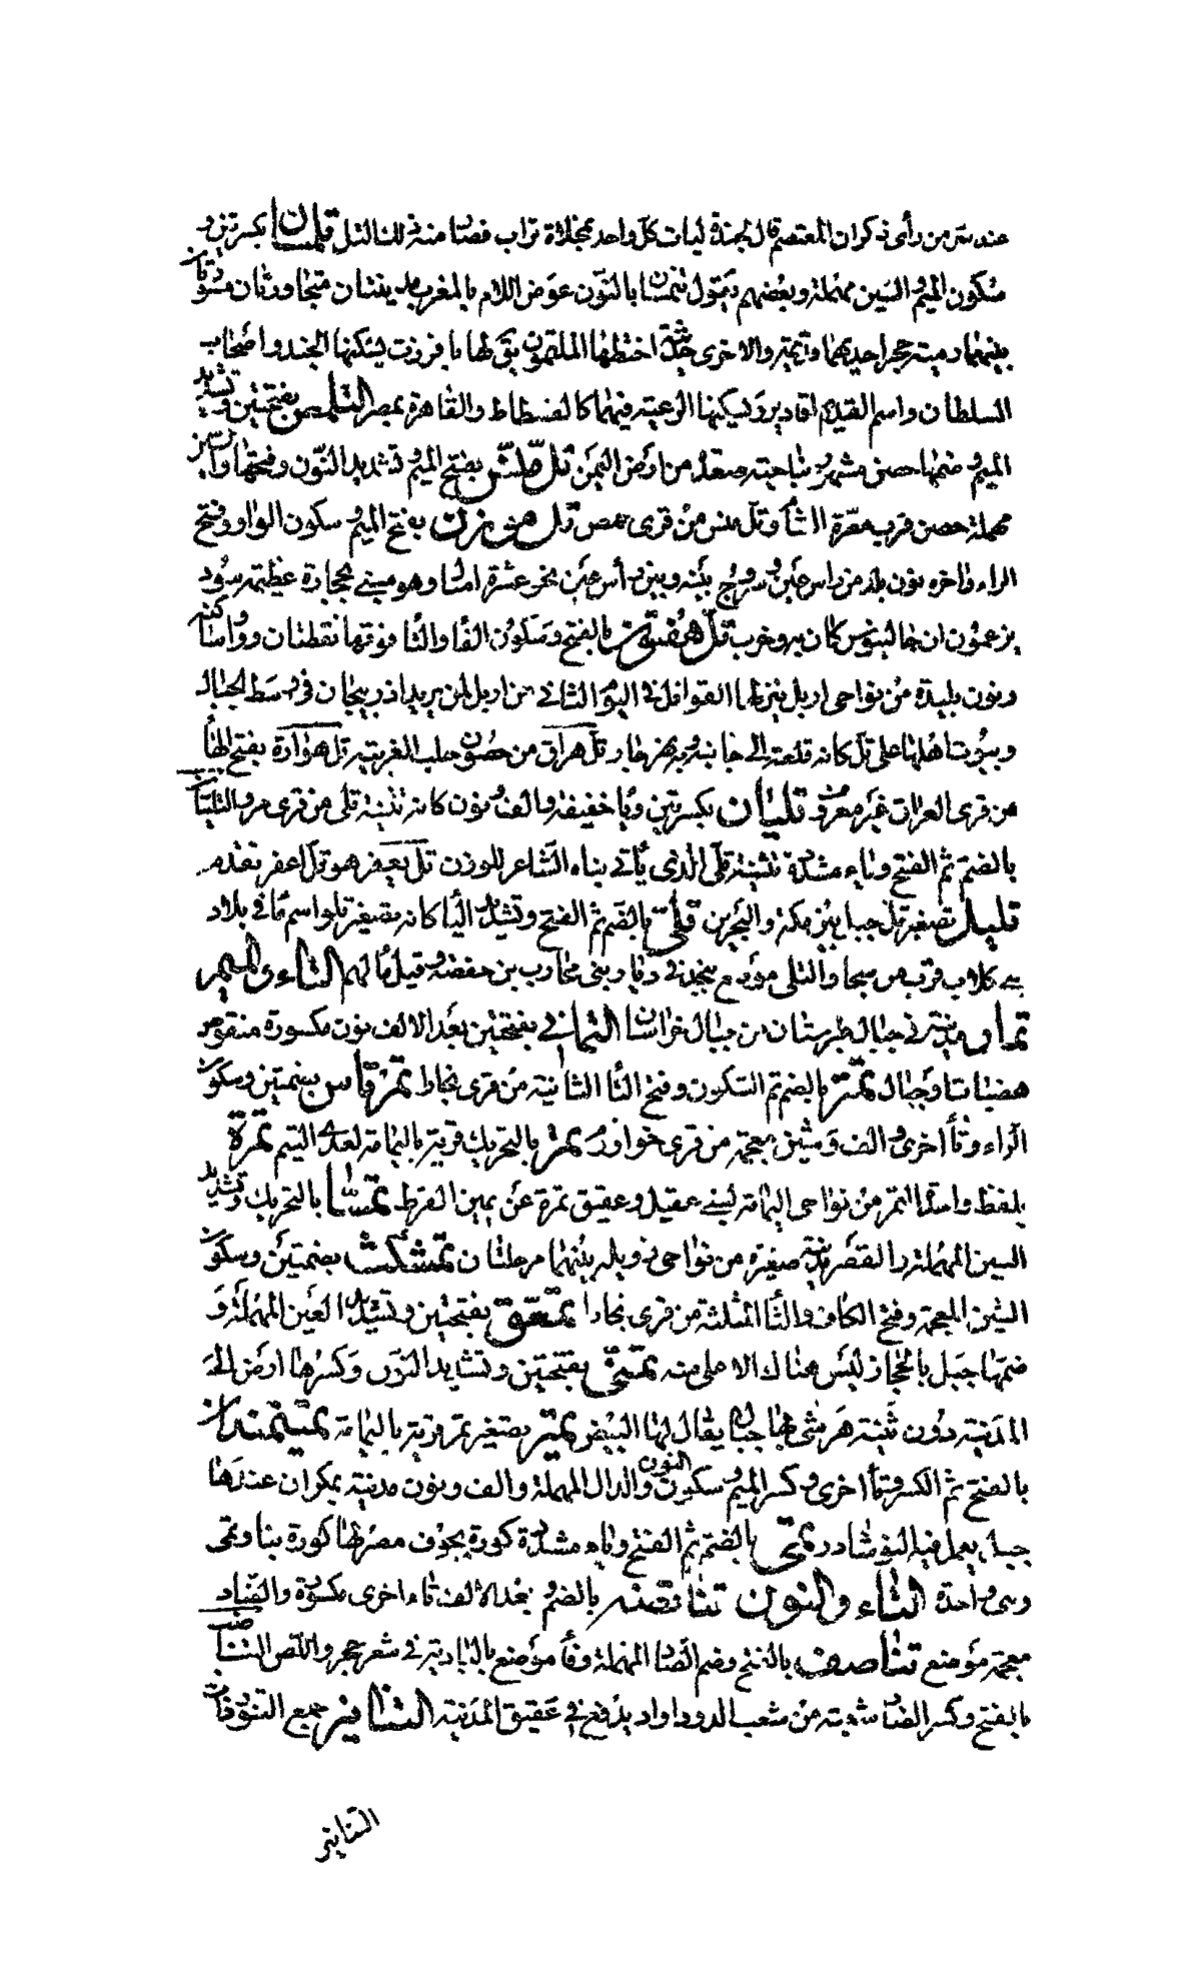 عند سر من رأى ذكر ان المعتصم قال لجنده ليات كل واحد بمخلاة تراب فصار منه ذلك التل تلمسان بكسرتين و
سكون الميم والسين مهملة وبعضهم يقول تنمسان بالنون عوض اللام بالمغرب مدينتان متجاورتان مسورتان
بينهما رمية حجر احديهما قديمة والاخرى حديثة اختطها الملثمون بقى لها تافرزت يسكنها الجند واصحاب
السلطان واسم القديم اقادير ويسكنها الرعية فهما كالفسطاط والقاهرة بمصر التلمص بفتحتين وتشديد
الميم وضمها حصن مشهور بناحية صعدة من ارض اليمن تل منس بفتح الميم وتشديد النون وفتحها والسين
مهملة حصن قرب معرة الشأم وتل منس من قرى حمص تل موزن بفتح الميم وسكون الواو وفتح
الزاء واخره نون بلد من راس عين وسروج بينه وبين رأس عين نحو عشرة اميال وهو مبنى بحجارة عظيمة سود
يزعمون ان جالينوس كان به وخرب تل هفتون بالفتح وسكون الفا والتا فوقها نقطتان وواو ساكنه
ونون بليدة من نواحى اربل ينزلها القوافل فى اليوم الثانى من اربل لمن يريد اذربيجان فى وسط الجبال
وبيوت اهلها على تل كانه قلعة الى جانبه وبه نهر جار تل هراق من حصون حلب الغربية تل هوارة بفتح الهأ
من قرى العراق غير معروف تليان بكسرتين ويا خفيفة والف ونون كانه تثنية تلى من قرى مرو التليان
بالضم ثم الفتح وياء مشددة تثنية تلى الذى يأتى بناه الشاعر للوزن تل يعفر هو تل اعفر تقدم
تليل تصغير تل جبل بين مكة والبحرين تلى بالضم ثم الفتح وتشديد اليا كانه تصغير تلو اسم مأ فى بلاد
بنى كلاب قرب من سجا والتلى موضع بنجد فى ديار بنى محارب بن خصفة وقيل مأ لهم التاء والميم
تمار مدينة فى جبال طبرستان من جبال خراسان التمانى بفتحتين بعد الالف نون مكسورة منقوص
هضبات او جبال تمتر بالضم ثم السكون وفتح التا الثانية من قرى بخارا تمرتاش بضمتين وسكون
الراء وتأ اخرى والف وشين معجمة من قرى خوارزم تمر بالتحريك قرية باليمامة لعدى التيم تمرة
بلفظ واحدة التمر من نواحى اليمامة لبنى عقيل وعقيق تمرة عن يمين الفرط تمسا بالتحريك وتشديد
السين المهملة والقصر مدينة صغيرة من نواحى زويلة بينهما مرحلتان تمشكث بضمتين وسكون
الشين المعجمة وفتح الكاف والثا المثلثة من قرى بخارا تمعق بفتحتين وتشديد العين المهملة و
ضمها جبل بالحجاز ليس هناك الا على منه تمنى بفتحتين وتشديد النون وكسرها ارض الى
المدينة دون ثنية هرشى بها جبال يقال لها البيض تمير تصغير تمر قرية باليمامة تميتمندان
بالفتح ثم الكسر وتأ اخرى وكسر الميم وسكون النون والدال المهملة والف ونون مدينة بمكران عندها
جبل يعمل فيه النوشادر تمى بالضم ثم الفتح وياء مشددة كورة بحوف مصر لها كورة بنا وتمى
وهى واحدة التاء والنون تناتضه بالضم وبعد الالف تاء اخرى مكسورة والضاد
معجمة موضع تناصف بالفتح وضم الصاد المهملة وفأ موضع بالبادية فى شعر جحدر اللص التناضب
بالفتح وكسر الضاد شعبة من شعب الدوداء واد يدفع فى عقيق المدينة التنانير جمع التنور ذات
التنانير